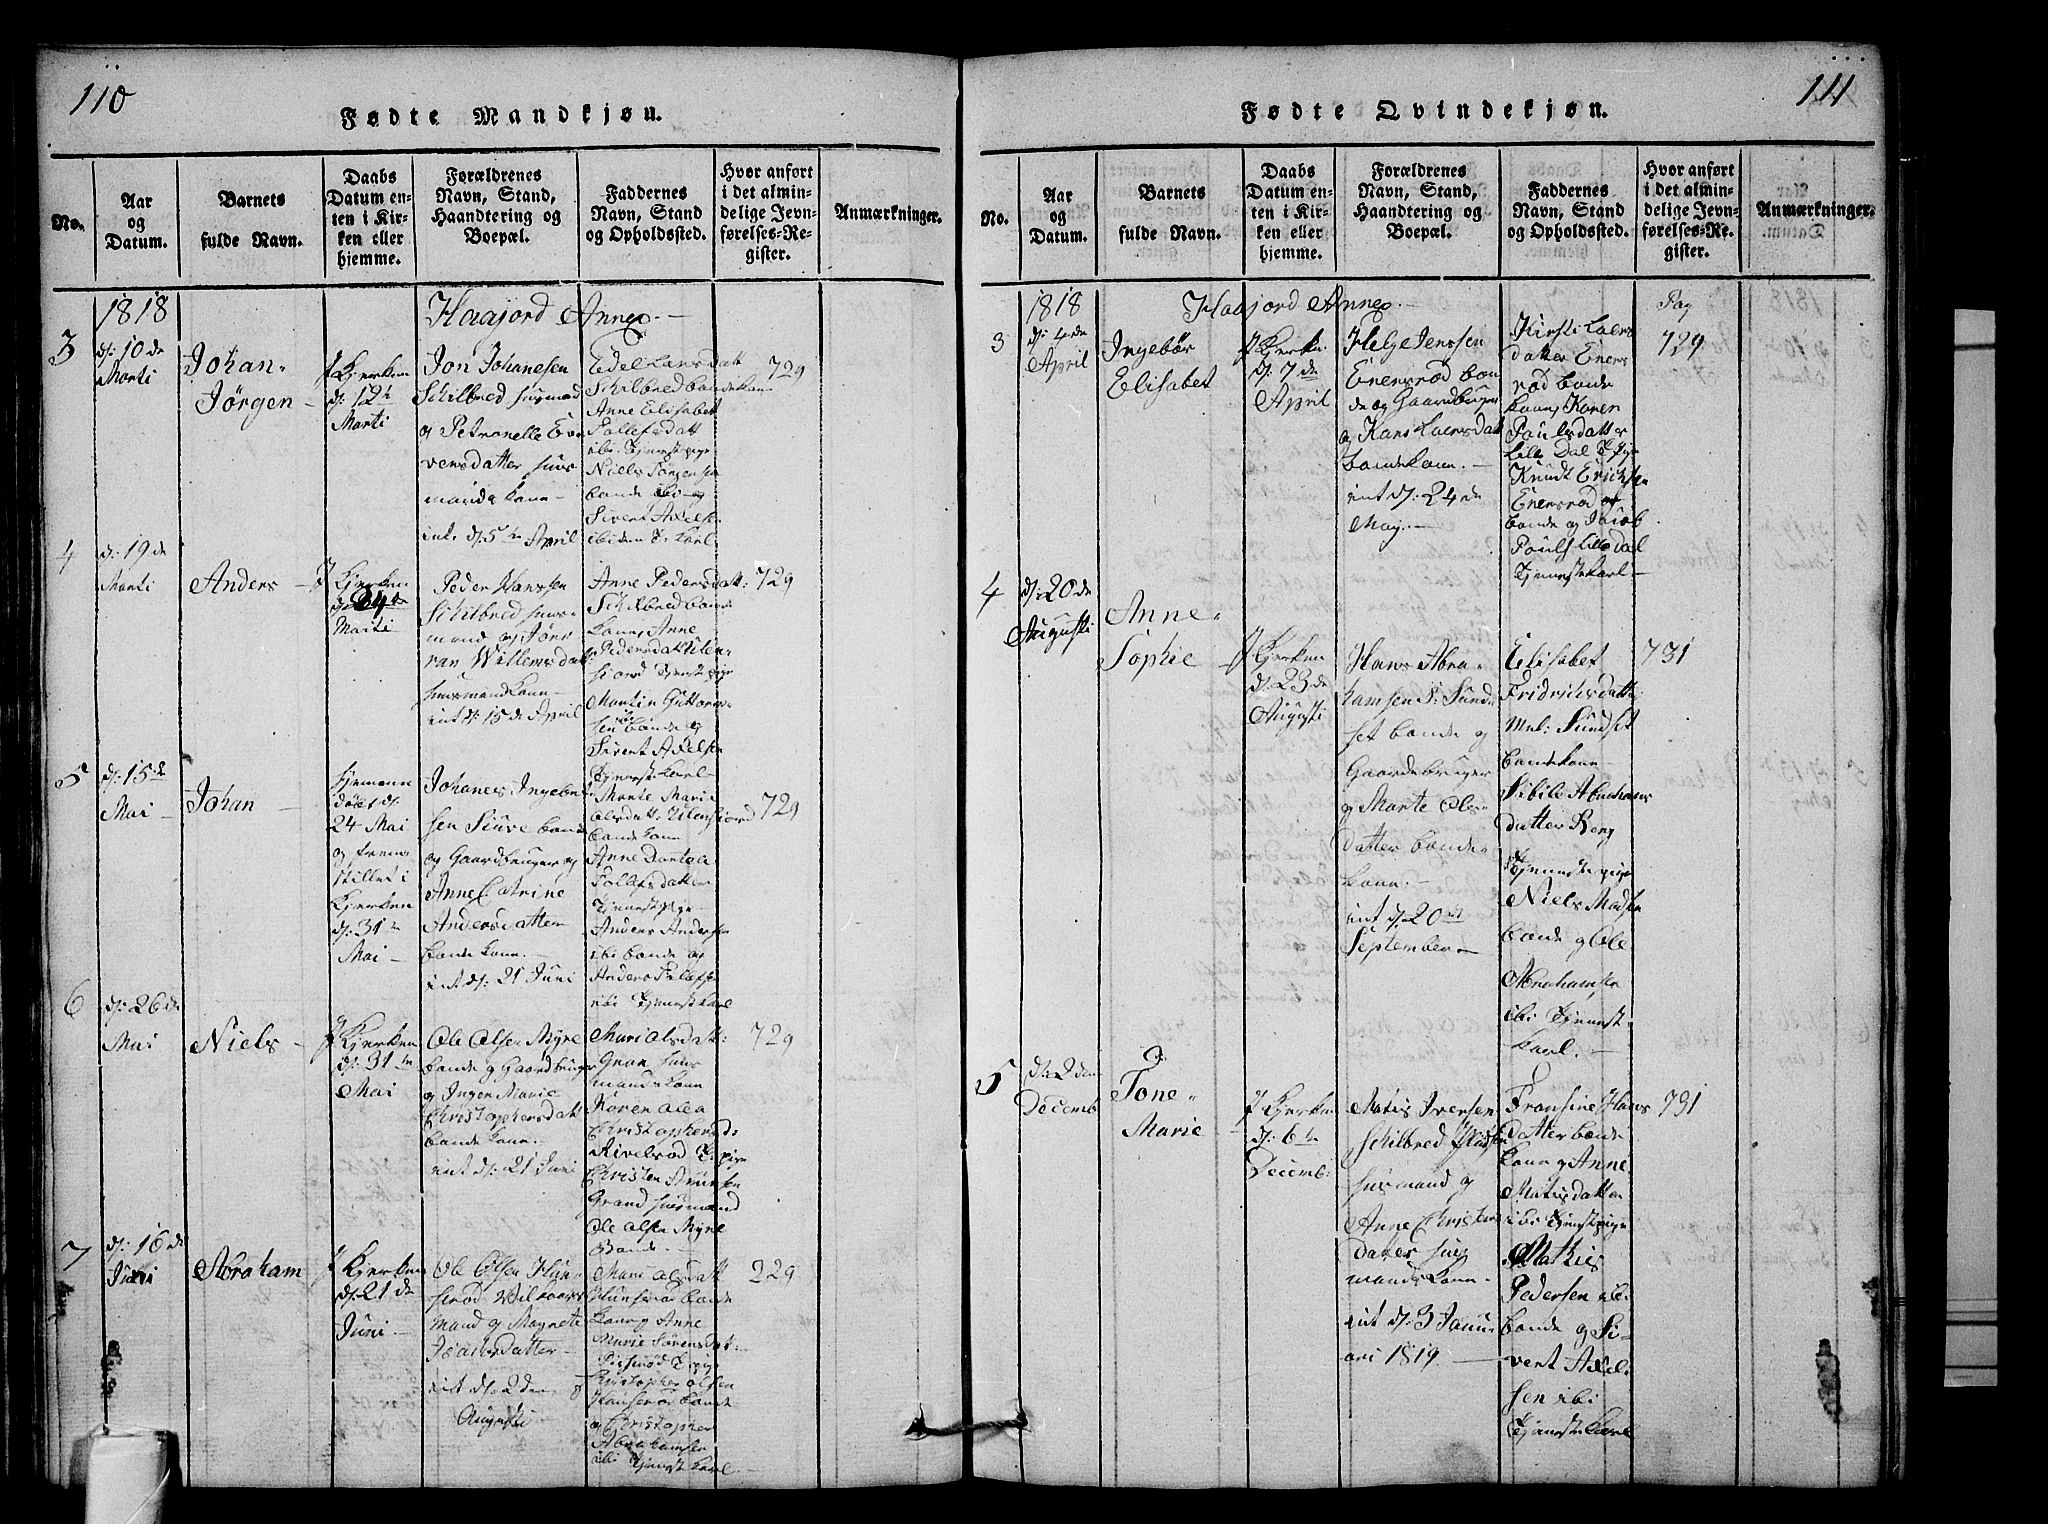 110
Fødte Mandkjøn.
No.
Aar
og
Datum.
Barnets
fulde Navn.
Daabs
Datum en-
ten i Kir-
ken eller
hjemme.
Forældrenes
Navn, Stand,
Haandtering og
Boepæl.
Faddernes
Navn, Stand
og Opholdsted.
Hvor anført
i det almin-
delige Jevn-
førelses-Re-
gister.
Anmærkninger.
1818
Haajord Annex.
3
d: 10de
Marti
Johan
Jørgen
J Kjerken
d: 12te
Marti
Jon Johanesen
Schilbred huusmand
og Petronelle Ive
versdatter huus
mands kone
int. d: 5te April
Edel Larsdatt
Schilbred bondekone
Anne Elisabet
Tollefsdatt
ibi. Tjenestpige
Niels Jørgensen
bonde ibi og
Sivert Axelsen
ibidem T. karl
729
4
d: 19de
Marti
Anders
J Kjerken
d: 24de
Marti
Peder Hanssen
Schilbred huus
mand og Jøro
ran Willemsdatt
huusmandkone
int d: 15de April
Anne Pedersdatt:
Schilbred bonde
kone Anne
Pedersdatt
Tjenestpige
Martin Guttorm
sen ibi bonde og
Sivert Axelsen
Tjenestkarl
729
5
d: 15de
Mai
Johan
hjemme
døbt d:
24 Mai
og frem
stillet i
Kjerken
d: 31te
Mai
Johanes Ingebret
sen Siuve bonde
og Gaardbruger og
Anne Catrine
Andersdatter
bonde kone
int. d: 21 Juni
Marte Marie
olsdatt:
bonde kone
Anne Dortea
Tollefsdatter
Tjenestpige
Anders Andersen
ibi bonde og
Anders Tollefsen
ibi Tjenestkarl
729
6
d: 26de
Mai
Niels
J Kjerken
d: 31te
Mai
Ole Olsen Myre
bonde og Gaardbruger
og Inger Marie
Christophersdatt
bonde kone.
int d: 21 Juni
Mari olsdatt:
Gran huus
mands kone
Karen olea
Christophersd:
Rivelsrød T. pige
Christen
Grand huusmand
Ole olsen Myre
Bonde.
729
7
d: 16de
Juni
Abraham
J Kjerken
d: 21de
Juni
Ole Olsen Hun
serød
mand og Magrete
Joachesdatter
int d: 2den
Augusti
Mari olsdatt
Hunserød bonde
kone Anne
Marie Sørensdat:
T. pige
Christopher Olsen
Hanserød bonde
og Christopher
Abrahamsen
ibi Tjenestkarl
229
111
Fødte Qvindekjøn.
No.
Aar
og
Datum.
Barnets
fulde Navn.
Daabs
Datum en-
ten i Kir-
ken eller
hjemme.
Forældrenes
Navn, Stand,
Haandtering og
Boepæl.
Faddernes
Navn, Stand
og Opholdsted.
Hvor anført
i det almin-
delige Jevn-
førelses-Re-
gister.
Anmærkninger.
1818
Haajord Annex.
Pag
3
d: 4de
April
Ingebør
Elisabet
J Kjerken
d: 7de
April
Helge Jenssen
Enersrød bon
de og Gaardbruger
og Kari Laersdatt
bondekone.
int d: 24de
May.
Kirsti Laers
datter Eners
rød bonde
kone, Karen
Poulsdatter
Lille Dal T. pige
Knudt Erichsen
Enersrød
bonde og Jacob
Pouls Lilledal
Tjenestkarl
729
4
d: 20de
Augusti
Anne
Sophie
J Kjerken
d: 23de
Augusti
Hans Abra
hamsen N: Sund
set bonde og
Gaardebruger
og Marte Ols
datter bonde
kone.
int d: 20de
September
Elisabet
Fridrichsdatt:
Mel: Sundset
bondekone
Sibile Abrahams
datter Berg
Tjenestepige
Niels Madsen
bonde og Ole
Abrahamsen
ibi Tjenest
karl.
731
5
d: 2den
Decemb
Tone
Marie
J Kjerken
d: 6te
Decemb:
Matis Iversen
Schilbred Pladsen
huusmand og
Anne Christens
datter huus
mands kone.
int d: 3 Janu
ari 1819
Fransine Hans
datter bonde
kone og Anne
Matisdatter
ibi Tjenestpige
Mathis
Pedersen ibi
bonde og Si
vert Axel
sen ibi
Tjenestekarl
731